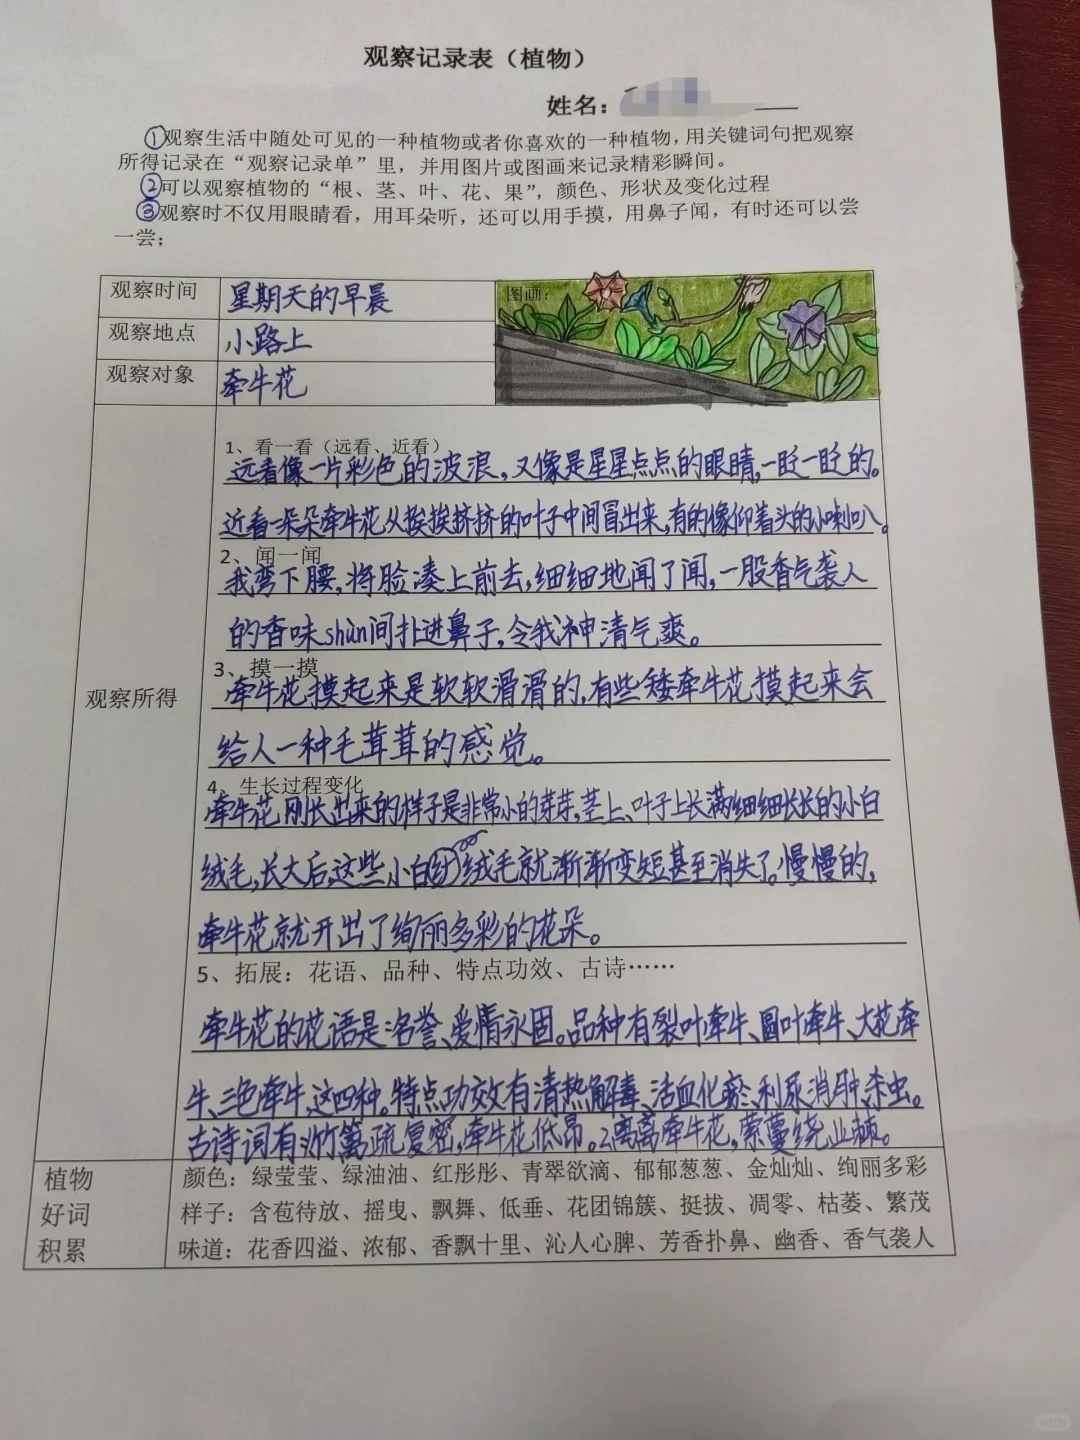 观察记录表（植物）
姓名：
①观察生活中随处可见的一种植物或者你喜欢的一种植物，用关键词句把观察
所得记录在“观察记录单”里，并用图片或图画来记录精彩瞬间。
②可以观察植物的“根、茎、叶、花、果”，颜色、形状及变化过程
③观察时不仅用眼睛看，用耳朵听，还可以用手摸，用鼻子闻，有时还可以尝
一尝；
观察时间 星期天的早晨 图画：
观察地点 小路上
观察对象 牵牛花
1、看一看（远看、近看）
远看像一片彩色的波浪，又像是星星点点的眼睛，一眨一眨的。
近看一朵朵牵牛花从挨挨挤挤的叶子中间冒出来，有的像仰着头的小喇叭。
2、闻一闻
我弯下腰，将脸凑上前去，细细地闻了闻，一股香气袭人
的香味shùn间扑进鼻子，令我神清气爽。
3、摸一摸
牵牛花摸起来是软软滑滑的，有些矮牵牛花摸起来会
给人一种毛茸茸的感觉。
观察所得
4、生长过程变化
牵牛花刚长出来的样子是非常小的芽芽，茎上、叶子上长满细细长长的小白
绒毛，长大后，这些小白绒毛就渐渐变短甚至消失了。慢慢的，
牵牛花就开出了绚丽多彩的花朵。
5、拓展：花语、品种、特点功效、古诗……
牵牛花的花语是：名誉、爱情永固。品种有裂叶牵牛、圆叶牵牛、大花牵
牛、三色牵牛，这四种。特点功效有清热解毒、活血化瘀、利尿消肿、杀虫。
古诗词有：1.竹篱疏复密，牵牛花低昂。2.离离牵牛花，萦蔓绕业棘。
植物
好词
积累
颜色：绿莹莹、绿油油、红彤彤、青翠欲滴、郁郁葱葱、金灿灿、绚丽多彩
样子：含苞待放、摇曳、飘舞、低垂、花团锦簇、挺拔、凋零、枯萎、繁茂
味道：花香四溢、浓郁、香飘十里、沁人心脾、芳香扑鼻、幽香、香气袭人